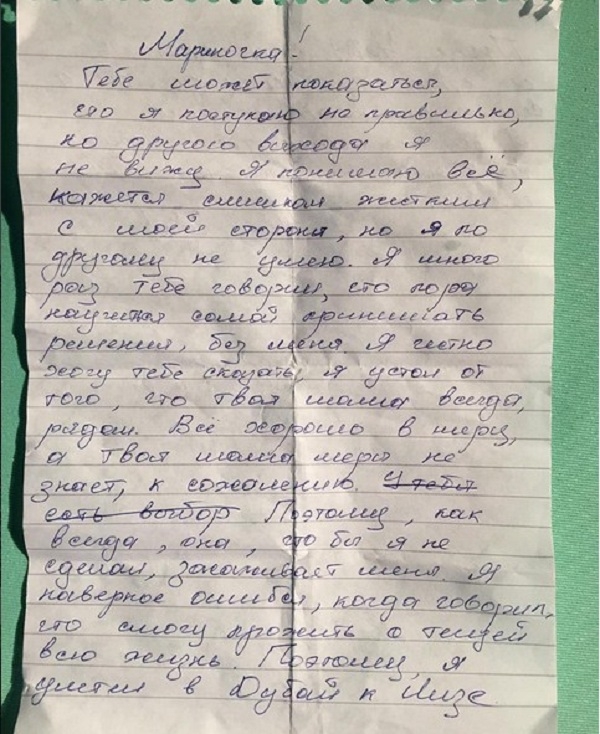 Мариночка!
Тебе может показаться,
что я поступаю не правильно,
но другого выхода я
не вижу. Я понимаю всё,
кажется слишком жестким
с моей стороны, но я по
другому не умею. Я много
раз тебе говорил, что пора
научится самой принимать
решения, без меня. Я честно
хочу тебе сказать, я устал от
того, что твоя мама всегда,
рядом. Всё хорошо в меру,
а твоя мама меры не
знает, к сожалению. У тебя
есть выбор Поэтому, как
всегда, она, что бы я не
сделал, засаживает меня. Я
наверное ошибся, когда говорил,
что смогу прожить с тещей
всю жизнь. Поэтому, я
улетел в Дубай к Лизе